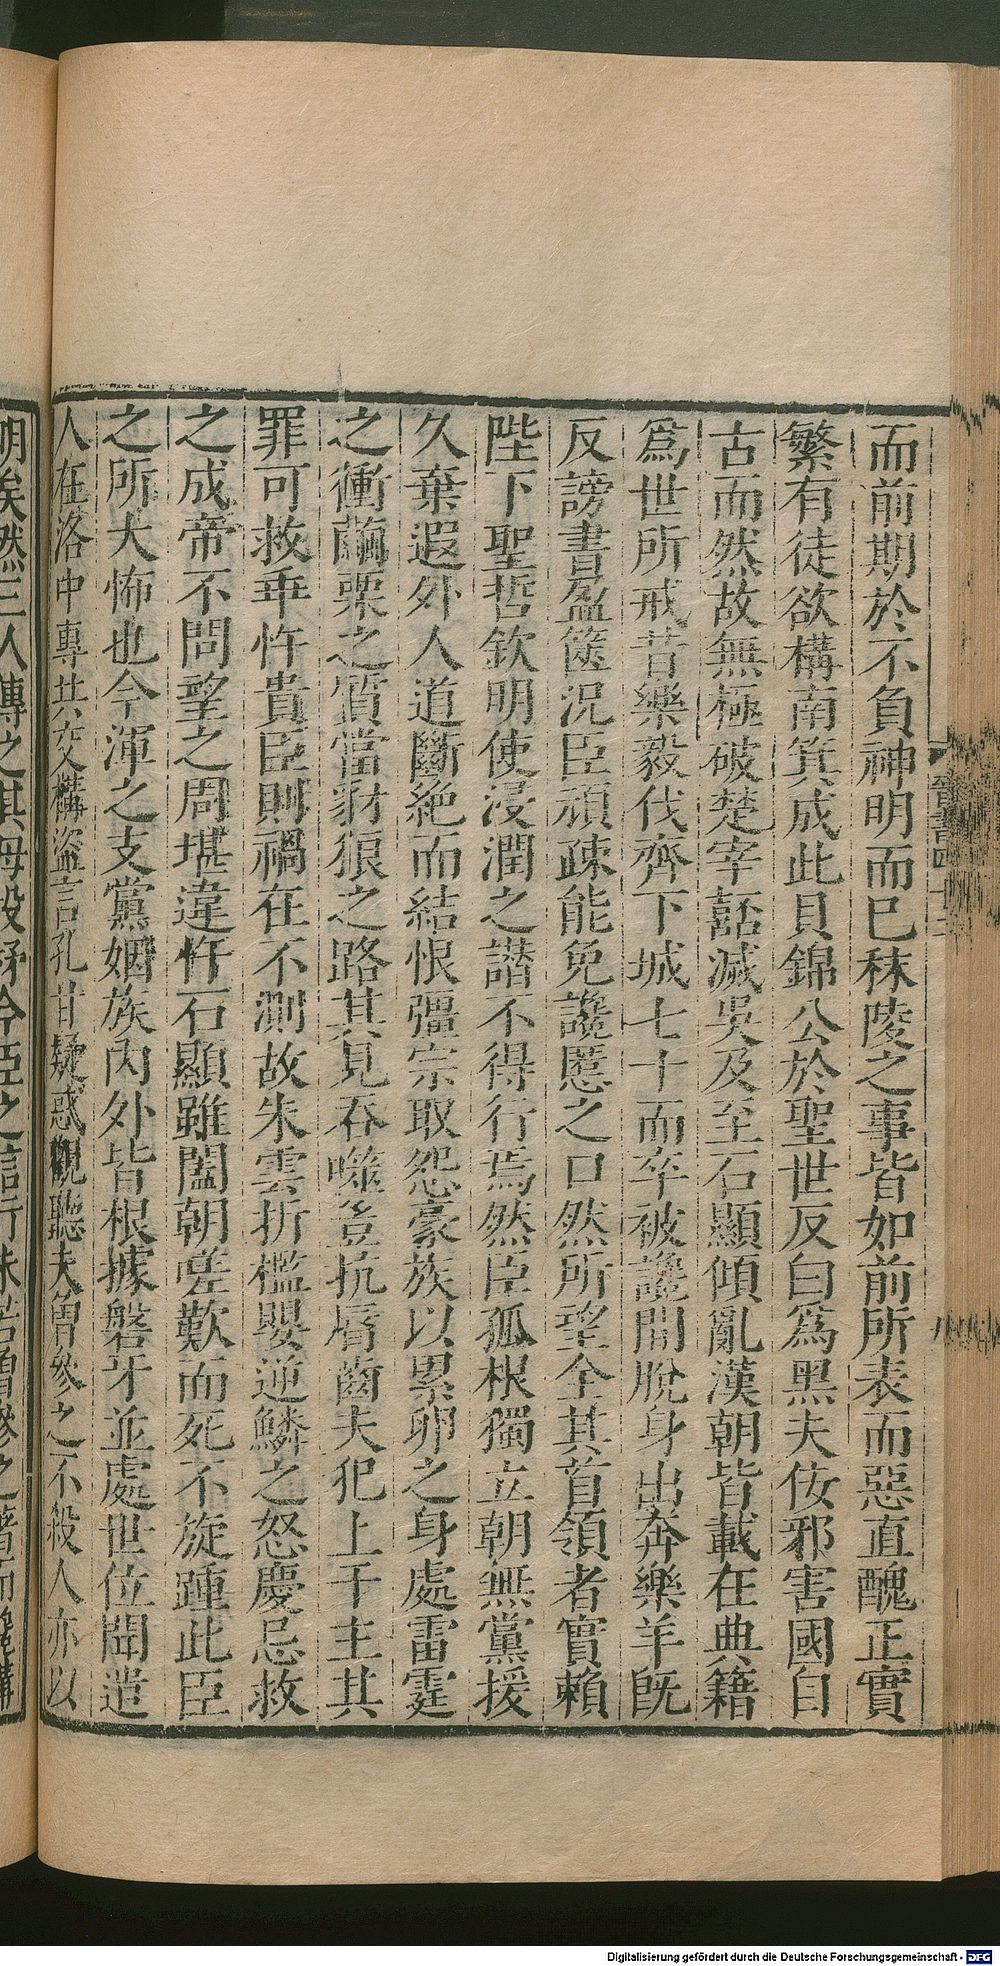 晉書四十二
而前期於不負神明而巳秣陵之事皆如前所表而惡直醜正實
繁有徒欲構南箕成此貝錦公於聖世反白爲黑夫佞邪害國自
古而然故無極破楚宰嚭滅吳及至石顯傾亂漢朝皆載在典籍
爲世所戒昔樂毅伐齊下城七十而卒被讒間脫身出奔樂羊旣
反謗書盈篋況臣頑疎能免讒慝之口然所望全其首領者實賴
陛下聖哲欽明使浸潤之譖不得行焉然臣孤根獨立朝無黨援
久棄遐外人道斷絶而結恨彊宗取怨豪族以累卵之身處雷霆
之衝繭栗之質當豺狼之路其見吞噬豈抗脣齒夫犯上干主其
罪可救乖忤貴臣則禍在不測故朱雲折檻嬰逆鱗之怒慶忌救
之成帝不問望之周堪違忤石顯雖闔朝嗟歎而死不旋踵此臣
之所大怖也今渾之支黨姻族內外皆根據磐牙並處世位聞遣
人在洛中專共交構盜言孔甘疑惑觀聽夫曾參之不殺人亦以
明矣然三人傳之其母投杼今臣之信行未若曾參之著而讒構
Digitalisierung gefördert durch die Deutsche Forschungsgemeinschaft - DFG